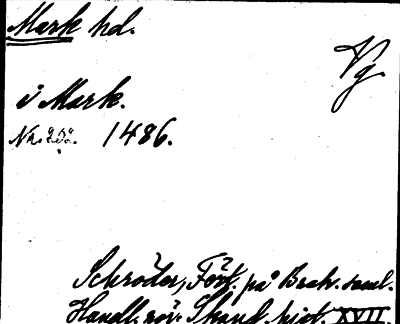 Mark hd.
Vg.
i Mark.
1486.
Schröder, Fört. på Brah. saml.
Handl. rör. Skand. hist. XVII.